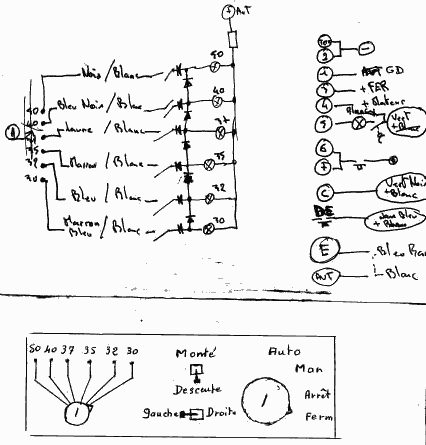 + AuT
50
Noir/Blanc
40
Bleu Noir/Blanc
37
Jaune/Blanc
35
Marron/Blanc
32
Bleu/Blanc
30
Marron
Bleu/Blanc
50
40
35
32
30
2
1
GD
3
+ FER
4
+ Flateur
5
Vert
+ Blanc
6
7
C
Vert Noir
+ Blanc
DE
Bleu
+ Blanc
E
Bleu
AUT
Blanc
50 40 37 35 32 30
Monté
Descente
gauche
Droite
Auto
Man
Arrêt
Ferm